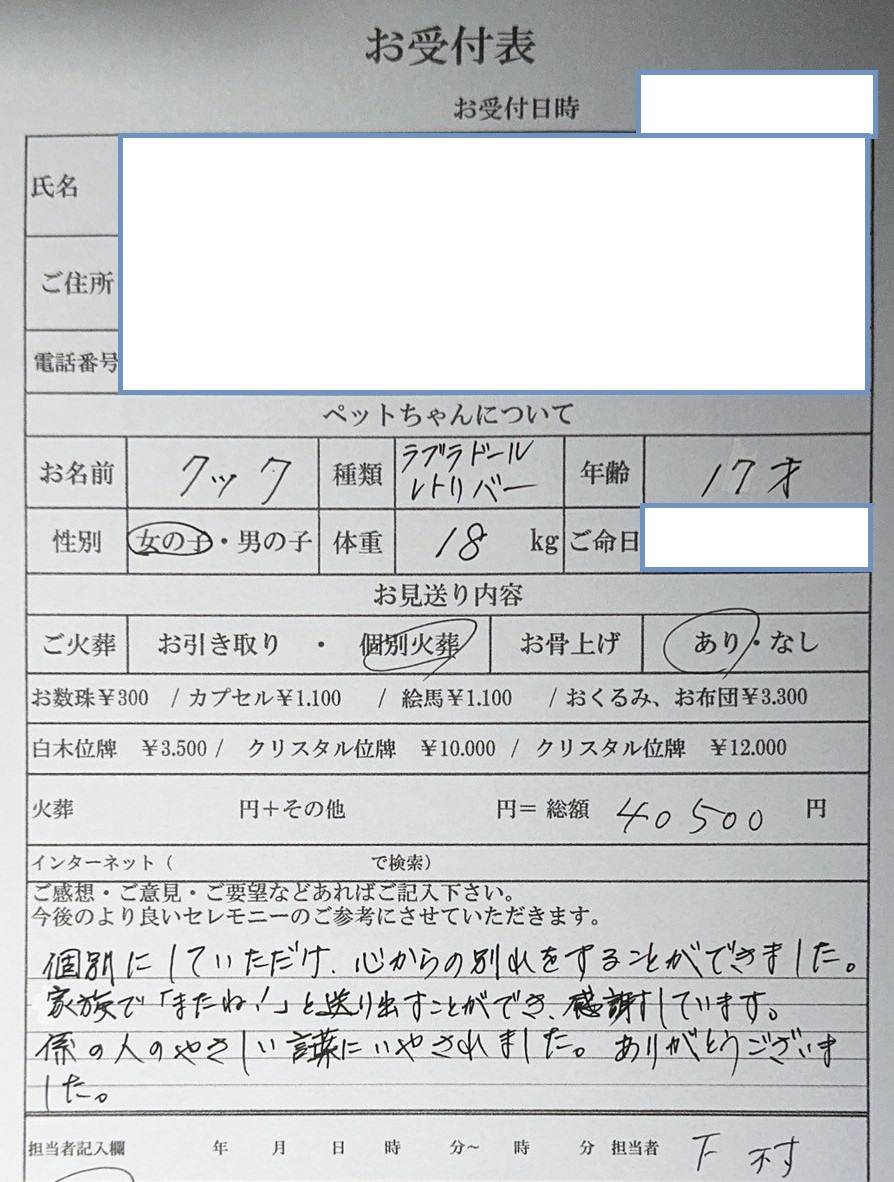 お受付表
お受付日時
氏名
ご住所
電話番号
ペットちゃんについて
お名前 クック 種類 ラブラドール レトリバー 年齢 17才
性別 女の子・男の子 体重 18 kg ご命日
お見送り内容
ご火葬 お引き取り ・ 個別火葬 お骨上げ あり・なし
お数珠¥300 / カプセル¥1.100 / 絵馬¥1.100 / おくるみ、お布団¥3.300
白木位牌 ¥3.500 / クリスタル位牌 ¥10.000 / クリスタル位牌 ¥12.000
火葬 円+その他 円= 総額 40500 円
インターネット( で検索)
ご感想・ご意見・ご要望などあればご記入下さい。
今後のより良いセレモニーのご参考にさせていただきます。
個別にしていただけ、心からの別れをすることができました。
家族で「またね!」と送り出すことができ、感謝しています。
係の人のやさしい言葉にいやされました。ありがとうございま
した。
担当者記入欄 年 月 日 時 分~ 時 分 担当者 下村